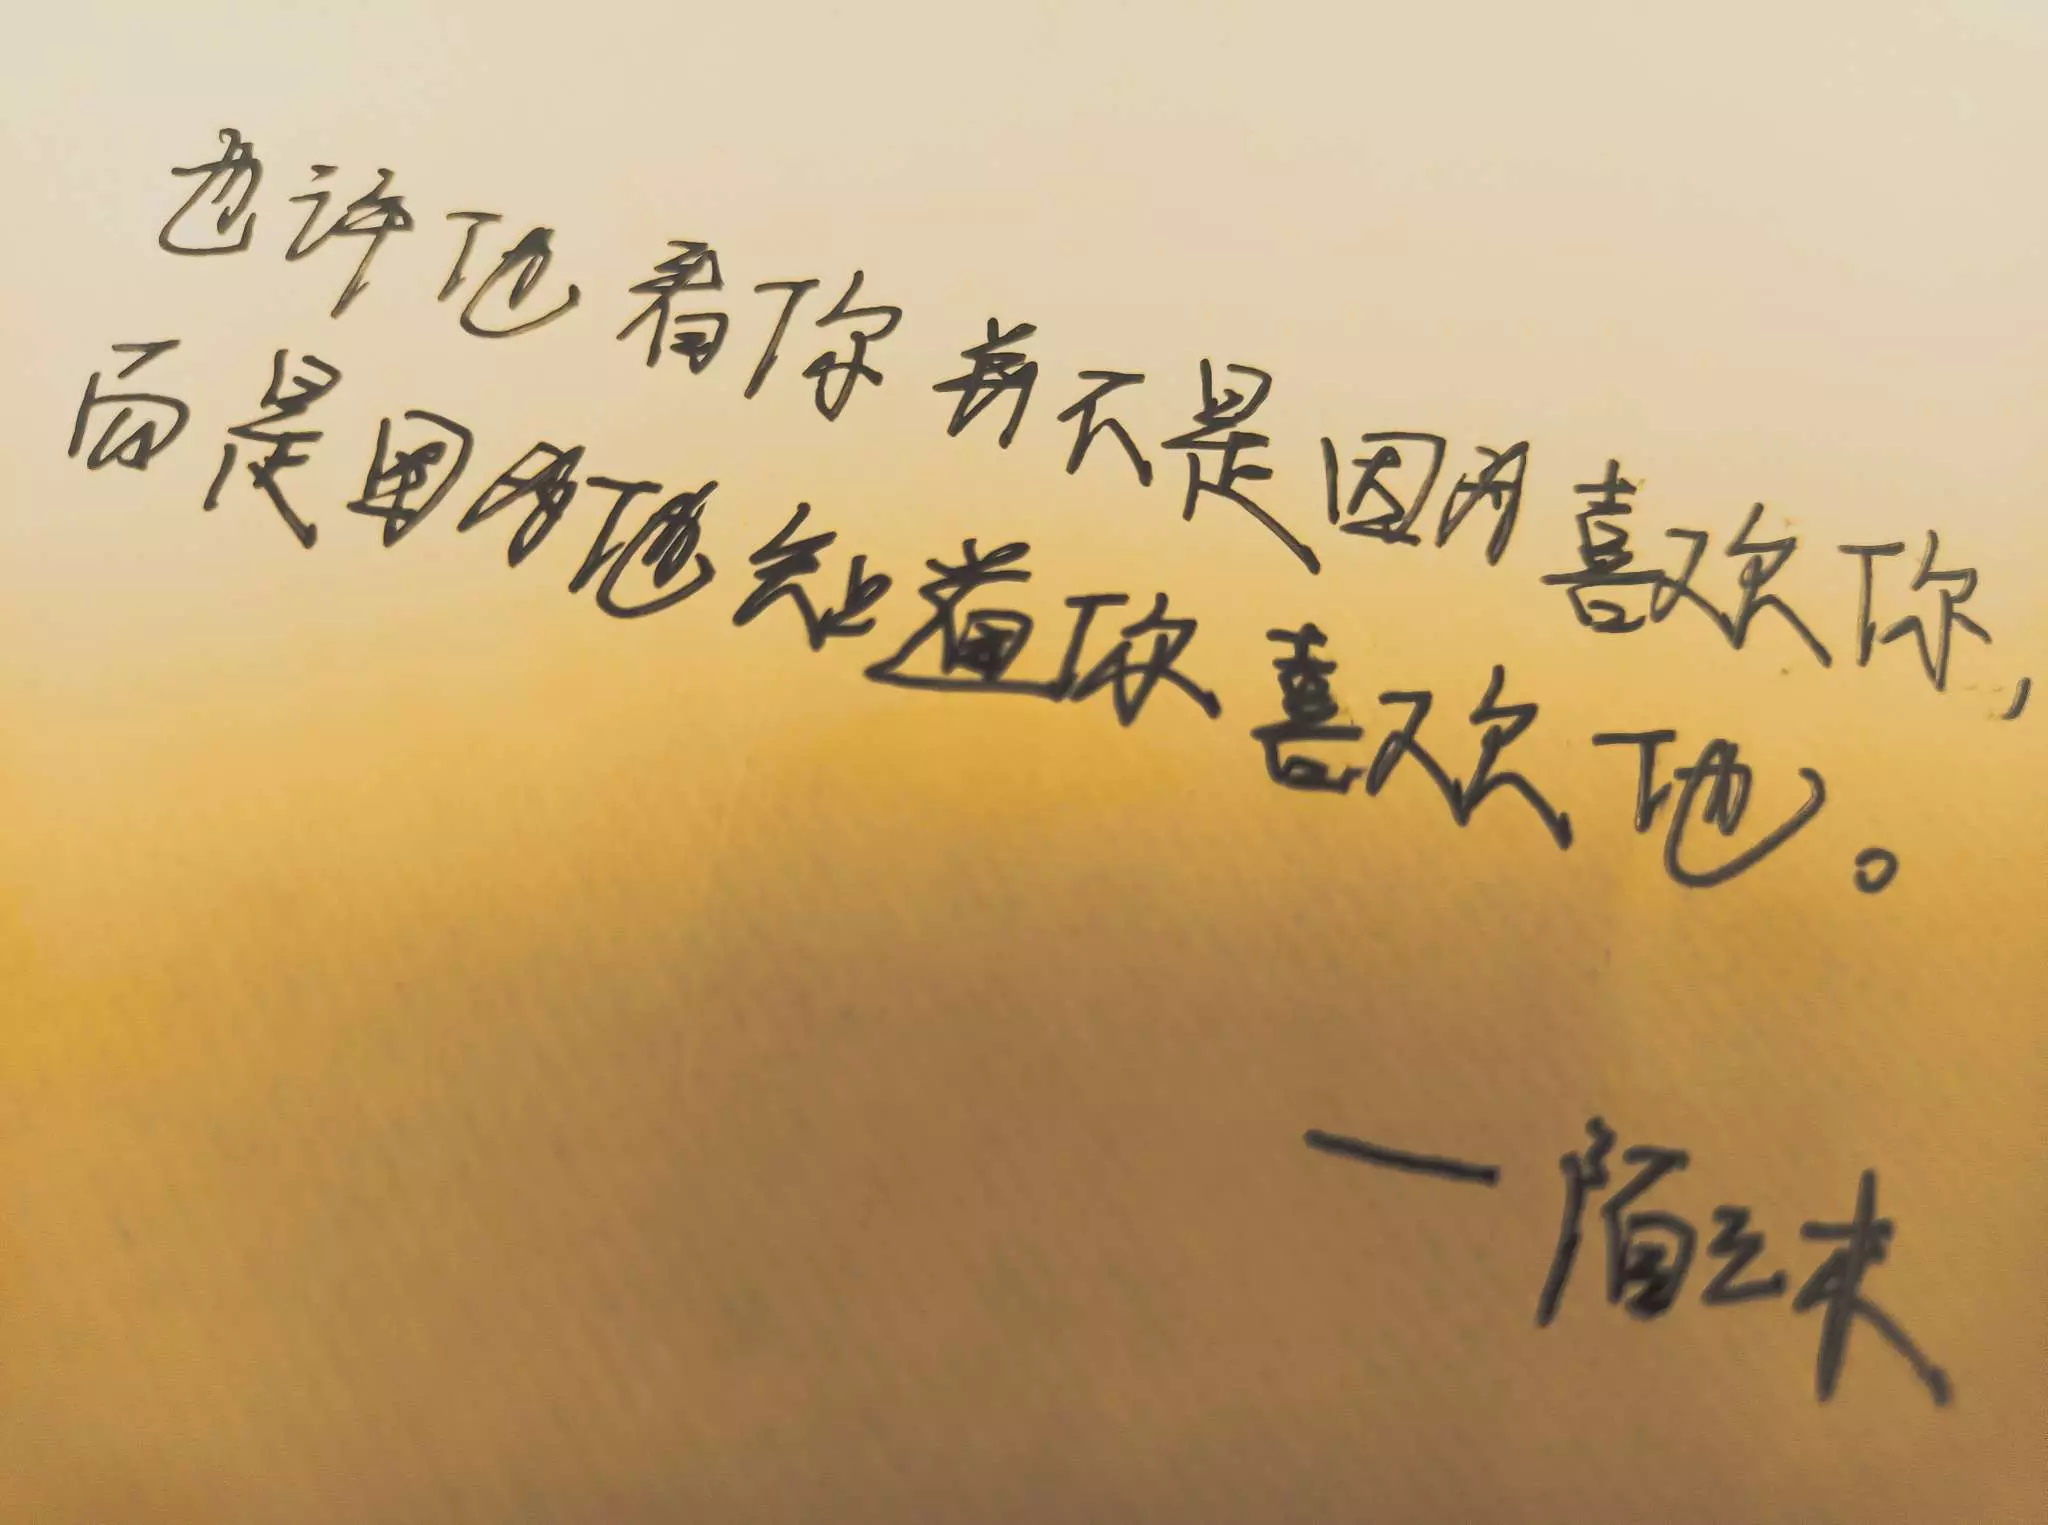 也许他看你并不是因为喜欢你,
而是因为他知道你喜欢他。
一陌云未